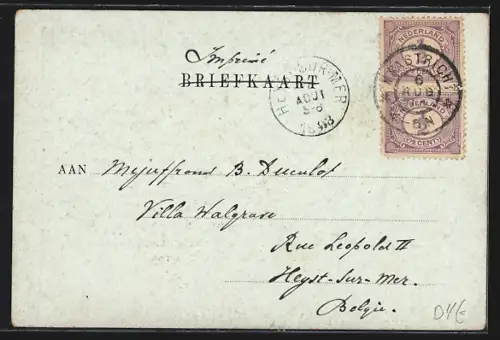 Imprimé
BRIEFKAART
NEDERLAND
MAASTRICHT
6
AUG
5N
HEYST-SUR-MER
AOUT
5-6
1898
½ CENT
AAN Mejuffrouw B. Duculot
Villa Walgrave
Rue Leopold II
Heyst-sur-Mer.
Belgie.